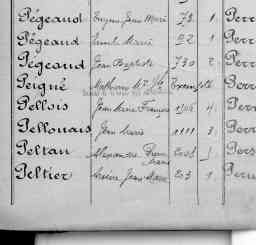 Pégeaud Eugène Jean Marie 72 1 Perr
Pégeaud Emile Marie 92 1 Perr
Pégeaud Jean Baptiste 730 2 Perr
Peigné Mathurin Transféré Perr
Pellois Jean Marie François 4 Perr
Pellouais Jean Marie 1111 3 Perr
Peltan Alexandre Pierre 1 Pers
Peltier Jean Marie 203 1 Peru